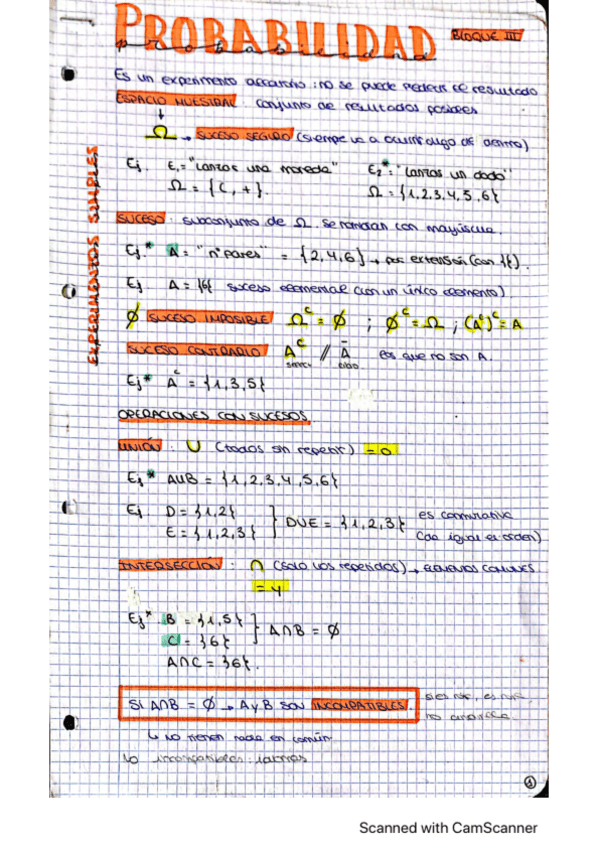 PROBABILIDAD BLOQUE III
probabilidad
Es un experimento aleatorio: no se puede predecir el resultado
ESPACIO MUESTRAL: conjunto de resultados posibles
Ω → SUCESO SEGURO (siempre va a ocurrir algo de dentro)
EXPERIMENTOS SIMPLES
Ej. E₁ = "Lanzar una moneda" E₂* = "Lanzar un dado"
Ω = {C, +}. Ω = {1,2,3,4,5,6}
SUCESO: subconjunto de Ω. Se nombran con mayúscula.
Ej.* A = "nº pares" = {2,4,6} → por extensión (con {}).
Ej A = {6} suceso elemental (con un único elemento).
∅ SUCESO IMPOSIBLE Ω^C = ∅ ; ∅^C = Ω ; (A^C)^C = A
SUCESO CONTRARIO A^C // Ā es que no son A.
Ej* A^C = {1,3,5}
OPERACIONES CON SUCESOS
UNIÓN: ∪ (todos sin repetir) = o
Ej* A∪B = {1,2,3,4,5,6}
Ej D = {1,2}
E = {1,2,3} } D∪E = {1,2,3} es conmutativa
(da igual el orden)
INTERSECCIÓN: ∩ (solo los repetidos) → elementos comunes
= y
Ej* B = {1,5} } A∩B = ∅
C = {6}
A∩C = {6}.
SI A∩B = ∅ → A y B SON INCOMPATIBLES.
↳ no tienen nada en común
①
Scanned with CamScanner